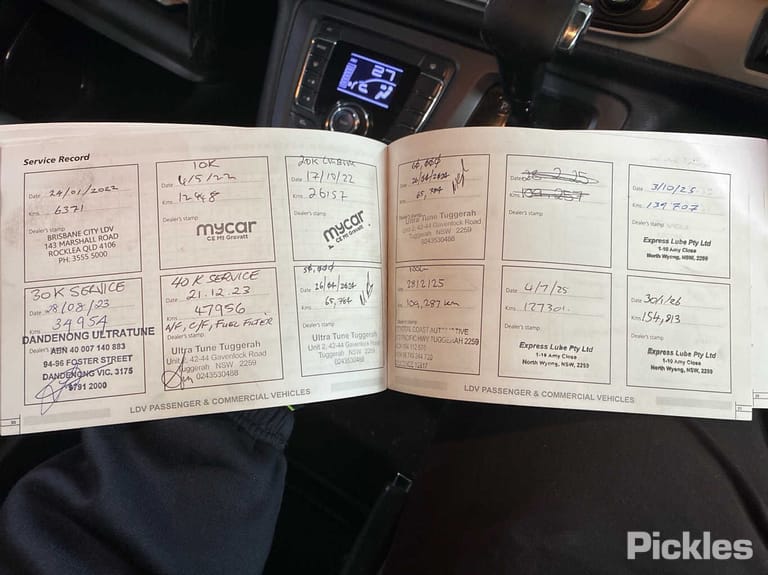 27
Service Record
Date 24/01/2022
Kms 6371
Dealer's stamp
BRISBANE CITY LDV
143 MARSHALL ROAD
ROCKLEA QLD 4106
PH: 3555 5000
10K
Date 4/5/22
Kms 12448
Dealer's stamp
mycar
CE Mt Gravatt
20K
Date 17/10/22
Kms 26157
Dealer's stamp
mycar
CE Mt Gravatt
30K SERVICE
28/08/23
Kms 34954
DANDENONG ULTRATUNE
ABN 40 007 140 883
94-96 FOSTER STREET
DANDENONG VIC. 3175
9791 2000
40K SERVICE
21.12.23
Kms 47956
A/F, C/F, FUEL FILTER
Ultra Tune Tuggerah
Unit 2, 42-44 Gavenlock Road
Tuggerah NSW 2259
0243530488
Date 26/04/2024
Kms 65,764
Dealer's stamp
Ultra Tune Tuggerah
Unit 2, 42-44 Gavenlock Road
Tuggerah NSW 2259
0243530488
LDV PASSENGER & COMMERCIAL VEHICLES
60,000
Date 26/04/2024
Kms 65,764
Dealer's stamp
Ultra Tune Tuggerah
Unit 2, 42-44 Gavenlock Road
Tuggerah NSW 2259
0243530488
Date 28-2-25
Kms 109,257
Dealer's stamp
Date 3/10/25
Kms 139707
Dealer's stamp
Express Lube Pty Ltd
1-10 Amy Close
North Wyong, NSW, 2259
Date 28/2/25
Kms 109,287 km
Dealer's stamp
PACIFIC HWY TUGGERAH 2259
Date 4/7/25
Kms 127301
Dealer's stamp
Express Lube Pty Ltd
1-10 Amy Close
North Wyong, NSW, 2259
Date 30/1/26
Kms 154,813
Dealer's stamp
Express Lube Pty Ltd
1-10 Amy Close
North Wyong, NSW, 2259
LDV PASSENGER & COMMERCIAL VEHICLES
Pickles